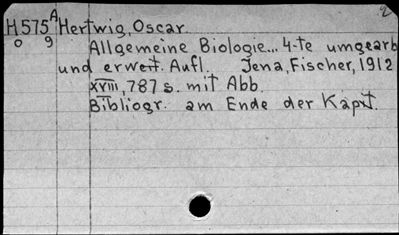 H575 A Hertwig, Oscar. 2
o 9 Allgemeine Biologie... 4-te umgearb
und erweit. Aufl. Jena, Fischer, 1912
XVIII, 787 s. mit Abb.
Bibliogr. am Ende der Kapit.